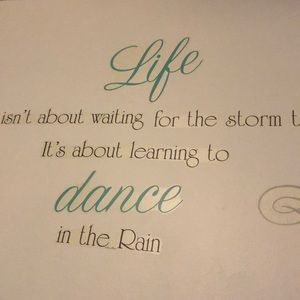 Life
isn't about waiting for the storm t
It's about learning to
dance
in the Rain